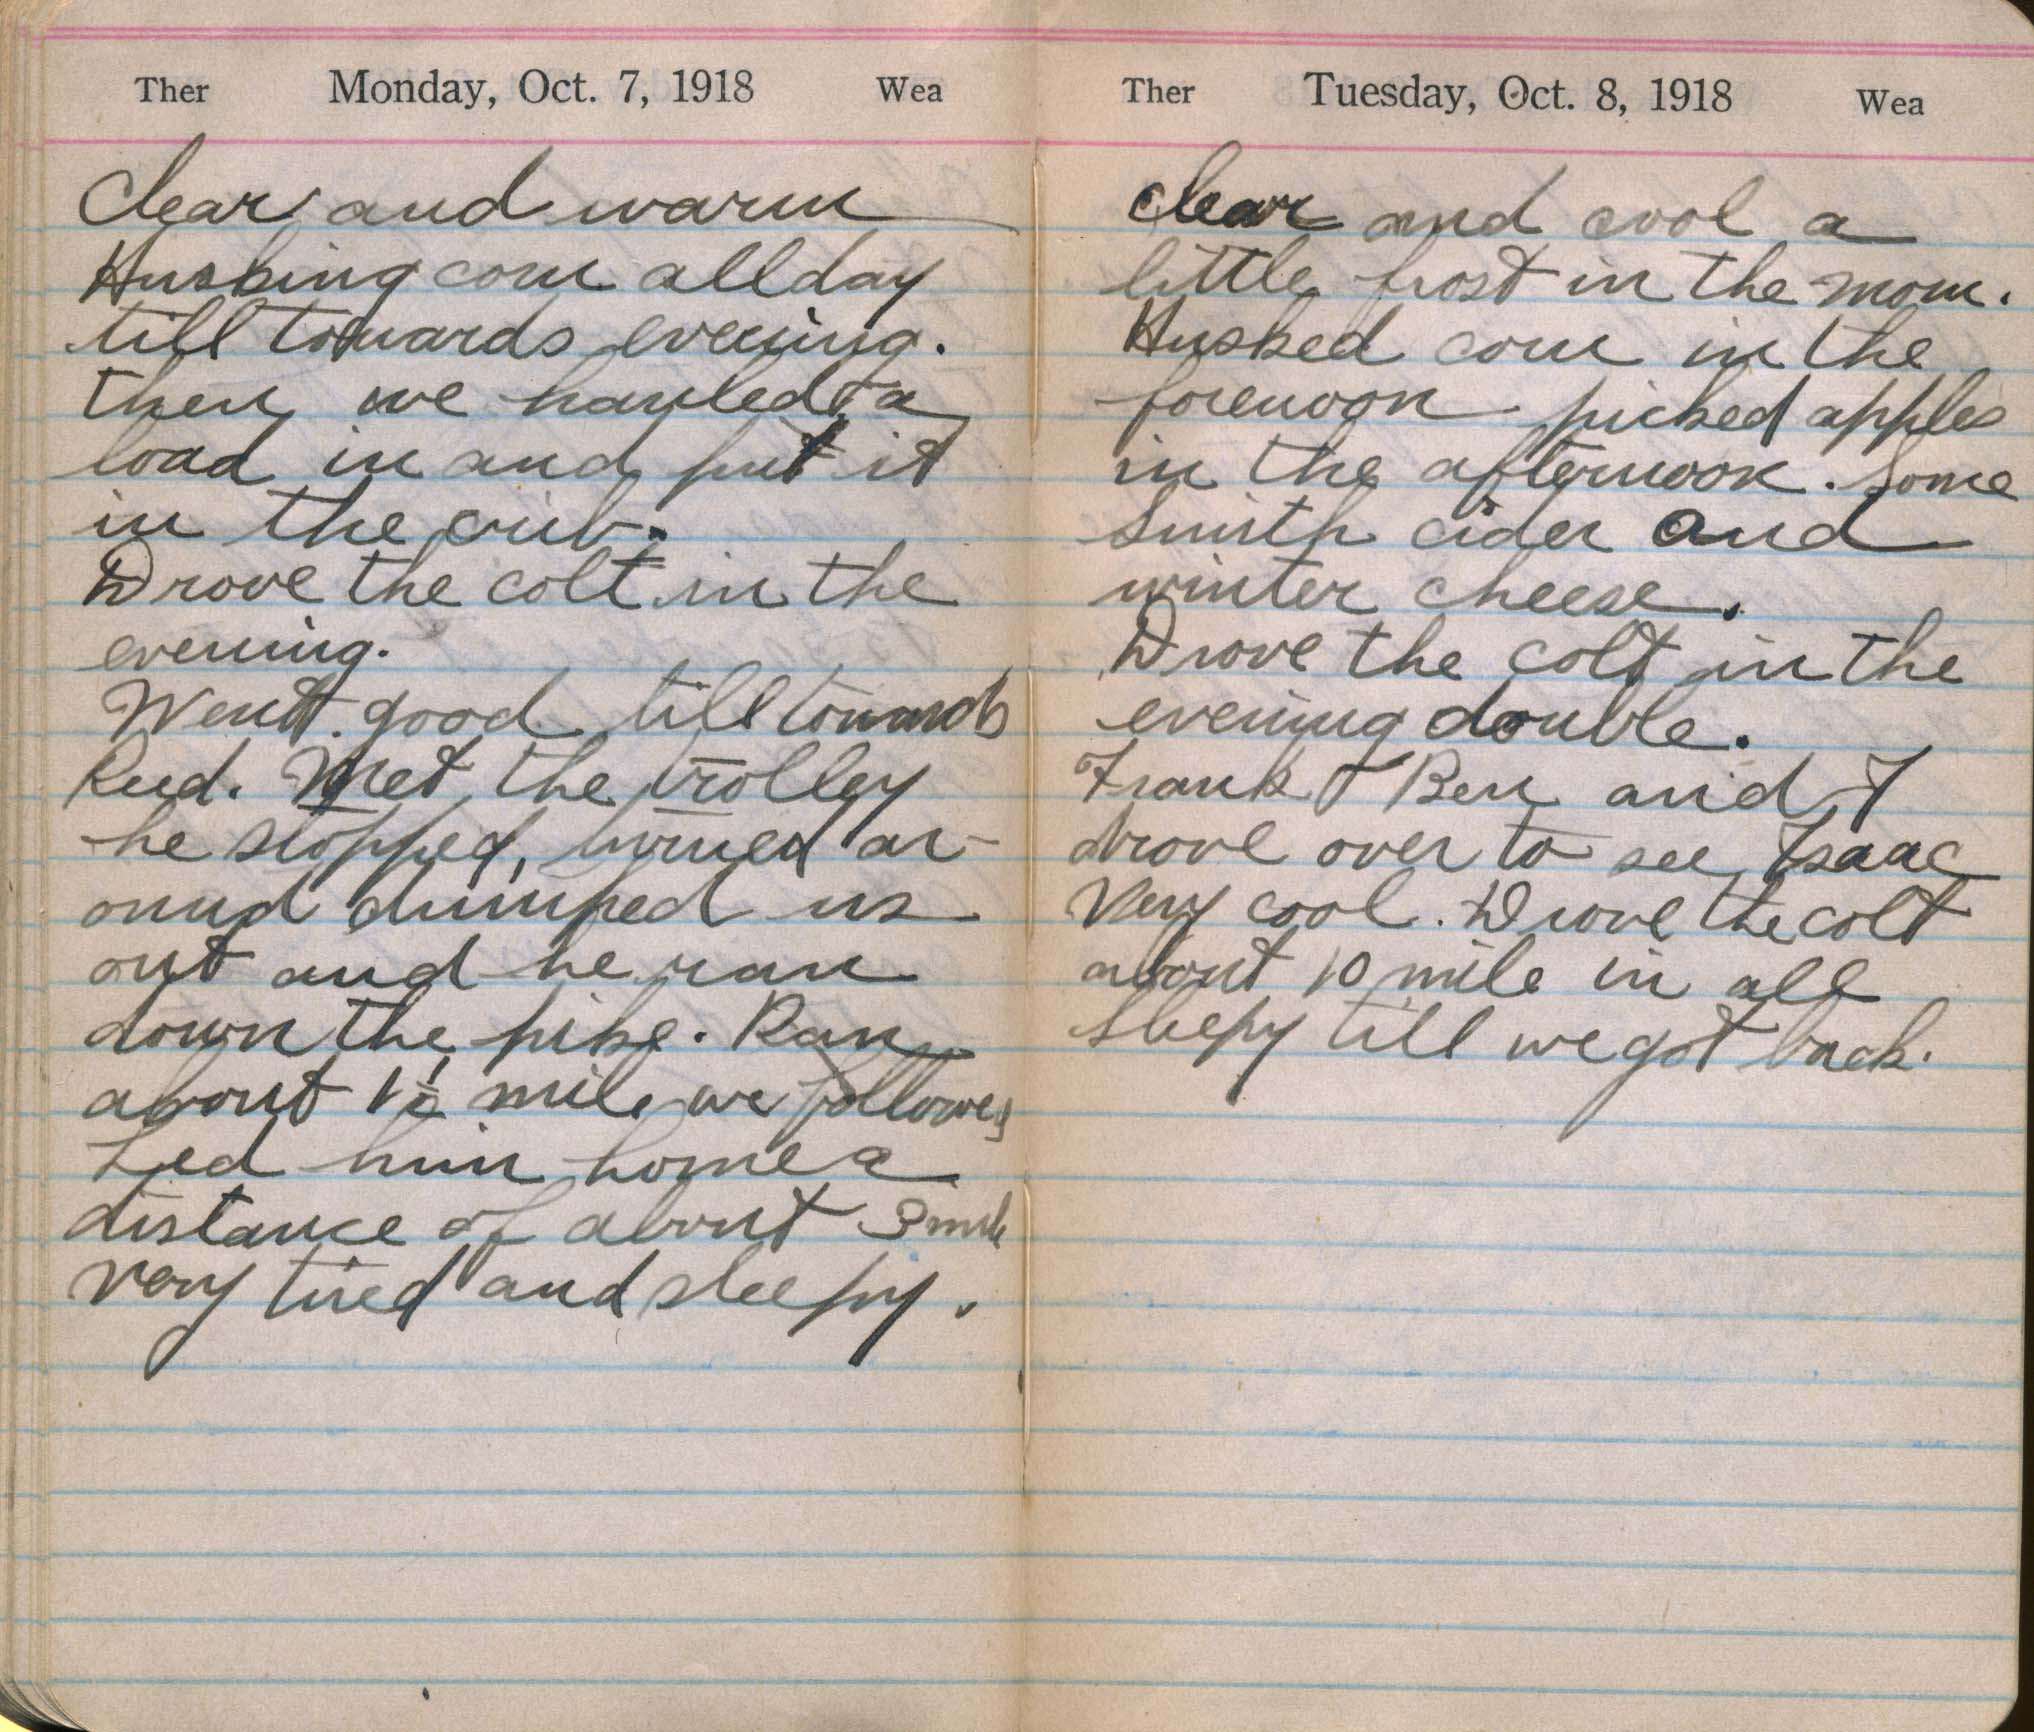 Ther Monday, Oct. 7, 1918 Wea
Clear and warm
Husking corn all day
till towards evening.
then we hauled a
load in and put it
in the crib.
Drove the colt in the
evening.
Went good till towards
Red. Met the trolley
he stopped, turned ar-
ound dumped us
out and he ran
down the pike. Ran
about 1½ mile we followed
Led him home a
distance of about 3 mile
very tired and sleepy.
Ther Tuesday, Oct. 8, 1918 Wea
clear and cool a
little frost in the morn.
Husked corn in the
forenoon picked apples
in the afternoon. Some
Smith cider and
winter cheese.
Drove the colt in the
evening double.
Frank & Ben and I
drove over to see Isaac
Very cool. Drove the colt
about 10 mile in all
sleepy till we got back.